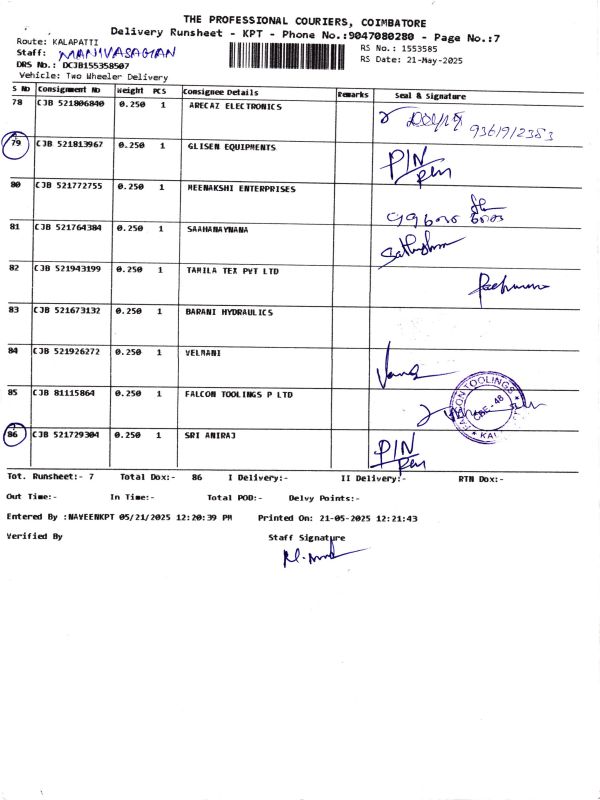 THE PROFESSIONAL COURIERS, COIMBATORE
Delivery Runsheet - KPT - Phone No.:9047080280 - Page No.:7
Route: KALAPATTI
Staff: MANIVASAGAN
RS No.: 1553585
DRS No.: DCJB155358507
RS Date: 21-May-2025
Vehicle: Two Wheeler Delivery
S No Consignment No Weight PCS Consignee Details Remarks Seal & Signature
78 CJB 521806840 0.250 1 ARECAZ ELECTRONICS 9361912383
79 CJB 521813967 0.250 1 GLISEN EQUIPMENTS PIN Pen
80 CJB 521772755 0.250 1 MEENAKSHI ENTERPRISES
81 CJB 521764384 0.250 1 SAAHANAYNANA
82 CJB 521943199 0.250 1 TAMILA TEX PVT LTD
83 CJB 521673132 0.250 1 BARANI HYDRAULICS
84 CJB 521926272 0.250 1 VELMANI
85 CJB 81115864 0.250 1 FALCON TOOLINGS P LTD FALCON TOOLINGS CBE - 48
86 CJB 521729304 0.250 1 SRI ANIRAJ PIN Pen
Tot. Runsheet:- 7 Total Dox:- 86 I Delivery:- II Delivery:- RTN Dox:-
Out Time:- In Time:- Total POD:- Delvy Points:-
Entered By :NAVEENKPT 05/21/2025 12:20:39 PM Printed On: 21-05-2025 12:21:43
Verified By Staff Signature